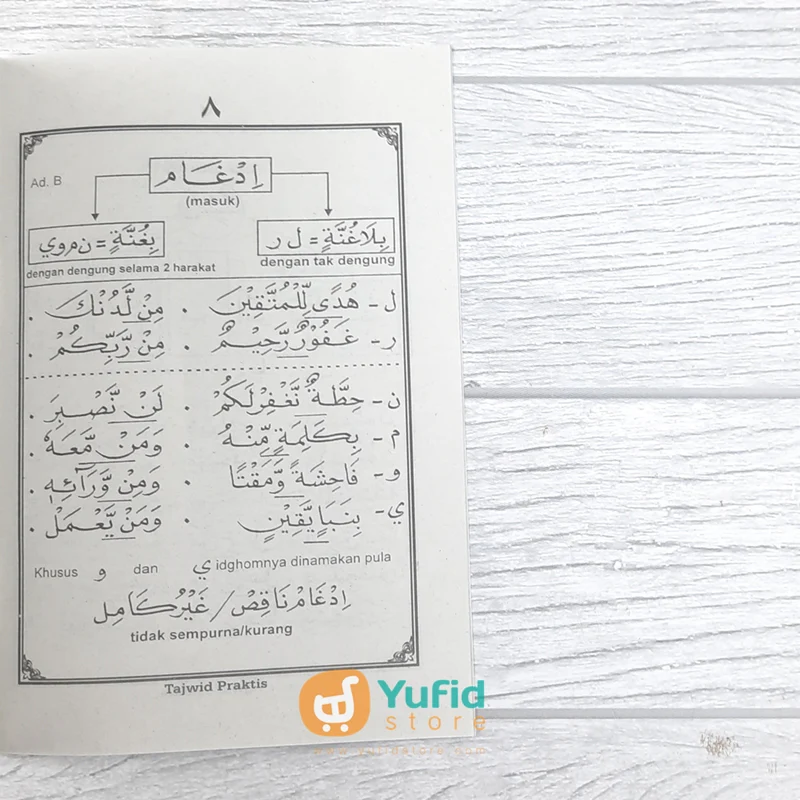 ٨
Ad. B
اِدْغَام
(masuk)
بِلَاغُنَّةٍ = ل ر
بِغُنَّةٍ = ن م و ي
dengan tak dengung
dengan dengung selama 2 harakat
ل - هُدًى لِّلْمُتَّقِيْنَ . مِنْ لَّدُنْكَ .
ر - غَفُوْرٌ رَّحِيْمٌ . مِنْ رَّبِّكُمْ .
ن - حِطَّةٌ نَّغْفِرْلَكُمْ . لَنْ نَّصْبِرَ .
م - بِكَلِمَةٍ مِّنْهُ . وَمَنْ مَّعَهٗ .
و - فَاحِشَةً وَّمَقْتًا . وَمِنْ وَّرَآئِهٖ .
ي - بِنَبَاٍ يَّقِيْنٍ . وَمَنْ يَّعْمَلْ .
Khusus و dan ي idghomnya dinamakan pula
اِدْغَامْ نَاقِصْ / غَيْرُ كَامِل
tidak sempurna/kurang
Tajwid Praktis
Yufid
store
www.yufidstore.com